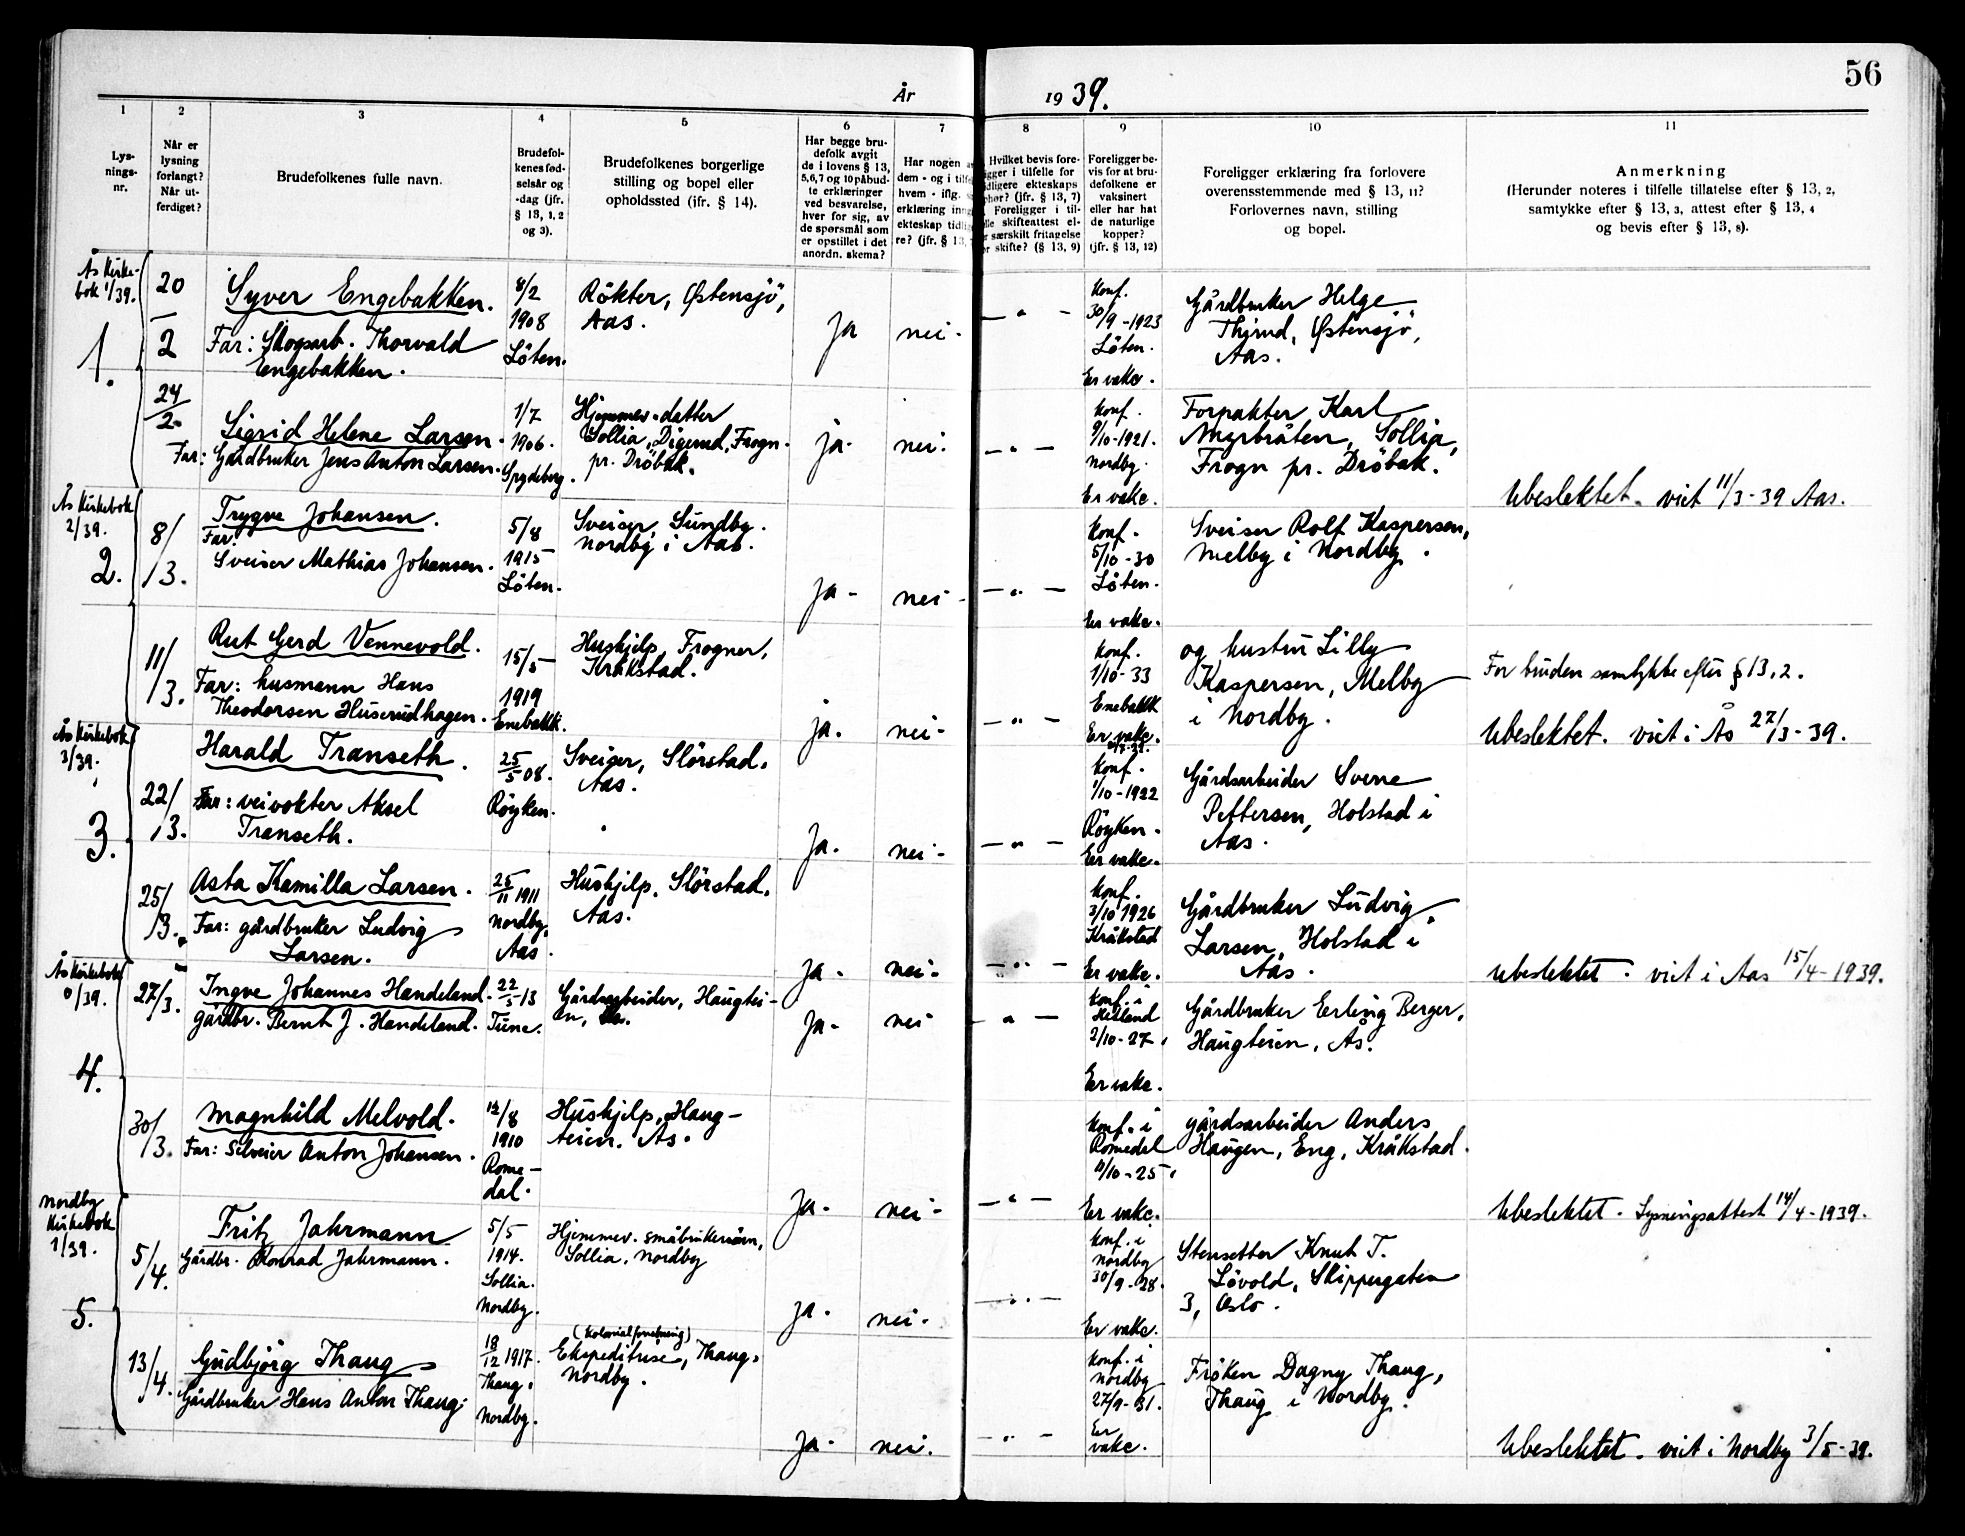 56
År 1939.
1 2 3 4 5 6 7 8 9 10 11
Lys-
nings-
nr.
Når er
lysning
forlangt?
Når ut-
ferdiget?
Brudefolkenes fulle navn.
Brudefol-
kenes fød-
selsår og
-dag (jfr.
§ 13, 1, 2
og 3).
Brudefolkenes borgerlige
stilling og bopel eller
opholdssted (ifr. § 14).
Har begge bru-
defolk avgit
de i lovens § 13,
5,6,7 og 10 påbud-
te erklæringer
ved besvarelse,
hver for sig, av
de spørsmål som
er opstillet i det
anordn. skema?
Har nogen
dem - og i
hvem - iflg.
erklæring
ekteskap
re? (jfr. § 13,
Hvilket bevis fore-
igger i tilfelle for
ekteskaps
(jfr. § 13, 7)
Foreligger i til-
skifteattest el-
særskilt fritagelse
skifte? (§ 13, 9)
Foreligger be-
vis for at bru-
defolkene er
vaksinert
eller har hat
de naturlige
kopper?
(jfr. § 13, 12)
Foreligger erklæring fra forlovere
overensstemmende med § 13, 11?
Forlovernes navn, stilling
og bopel.
Anmerkning
(Herunder noteres i tilfelle tillatelse efter § 13, 2,
samtykke efter § 13, 3, attest efter § 13, 4
og bevis efter § 13, 8).
Ås Kirke-
bok 1/39.
1.
20
2
Syver Engebakken.
Far: Skogsarb. Thorvald
Engebakken.
8/2
1908
Löten.
Rökter, Østensjö,
Aas.
Ja
nei.
— " —
Konf.
30/9 - 1923
Löten.
Er vakc.
Gårdbruker Helge
Thirud, Østensjö,
Aas.
24
2.
Sigrid Helene Larsen.
Far: Gårdbruker Jens Anton Larsen.
1/7
1906.
Spydeberg.
Hjemmev. datter
Sollia, Digerud, Frogn.
pr. Dröbak.
ja.
nei.
— " —
Konf.
9/10 - 1921.
Nordby.
Er vakc.
Forpakter Karl
Myrbråten, Sollia,
Frogn pr. Dröbak.
Ubeslektet. viet 11/3 - 39 Aas.
Ås Kirkebok
2/39.
2.
8/
/3.
Trygve Johansen.
Far:
Sveiser Mathias Johansen.
5/8
1915
Löten.
Sveiser, Sundby.
Nordby i Aas.
ja -
nei -
— " —
Konf.
5/10 - 30
Löten.
Er vakc.
Sveiser Rolf Kaspersen,
Melby i Nordby.
11/
/3.
Rut Gerd Vennevold.
Far: husmann Hans
Theodorsen Huserudhagen.
15/5
1919
Enebakk.
Hushjelp, Frogner,
Kråkstad.
ja.
nei -
— " —
Konf.
1/10 - 33
Enebakk
Er vakc.
og hustru Lilly
Kaspersen, Melby
i Nordby.
For bruden samtykke efter § 13, 2.
Ubeslektet. viet i Ås 27/3 - 39.
Ås Kirkebok
3/39.
3.
22/
/3.
Harald Transeth.
Far: veivokter Aksel
Transeth.
25
5 08.
Röyken.
Sveiser, Slörstad.
Aas.
Ja.
nei -
— " —
Konf.
1/10 - 1922
Röyken.
Er vakc.
Gårdsarbeider Sverre
Pettersen, Holstad i
Aas.
25/
/3.
Asta Kamilla Larsen.
Far: gårdbruker Ludvig
Larsen.
25
11 1911
Nordby,
Aas.
Hushjelp, Slörstad.
Aas.
Ja.
nei.
— " —
Konf.
3/10 1926
Kråkstad
Er vakc.
Gårdbruker Ludvig
Larsen, Holstad i
Aas.
Ubeslektet. viet i Aas 15/4 - 1939.
Ås Kirkebok
/39.
4.
27/3.
Ingve Johannes Handeland.
gårdbr. Bernt J. Handeland.
22
5 13
Tune.
Gårdsarbeider, Haugtei-
en, Ås.
Ja.
nei
— " —
Konf. i
2/10 - 27.
Er vakc.
Gårdbruker Erling Berger,
Haugteien, Ås.
30/
/3.
Magnhild Melvold.
Far: Selveier Anton Johansen.
12/8
1910
Rome-
dal.
Hushjelp, Haug-
teien. As.
Ja.
nei -
— " —
Konf. i
Romedal
11/10 - 25.
Er vakc.
gårdsarbeider Anders
Haugen, Eng, Kråkstad.
Ubeslektet. Lysningsattest 14/4 - 1939.
Nordby
Kirkebok
1/39.
5.
5/
/4.
Fritz Jahrmann
Gårdbr. Konrad Jahrmann.
5/5
1914.
Sollia.
Nordby.
Hjemmev. småbrukersönn,
Sollia, Nordby
ja.
nei.
— " —
Konf. i
Nordby
30/9 - 28.
Er vakc.
Stensetter Knut T.
Lövold, Skippergaten
3, Oslo.
13/
/4.
Gudbjörg Thaug
Gårdbruker Hans Anton Thaug.
18
12 1917.
Thaug.
Nordby.
(Kolonialforretning)
Ekspeditrise, Thaug.
Nordby.
Ja.
nei.
— " —
Konf. i
Nordby
27/9 - 31.
Er
vakc.
Fröken Dagny Thaug,
Thaug i Nordby.
Ubeslektet. viet i Nordby 3/5 - 39.